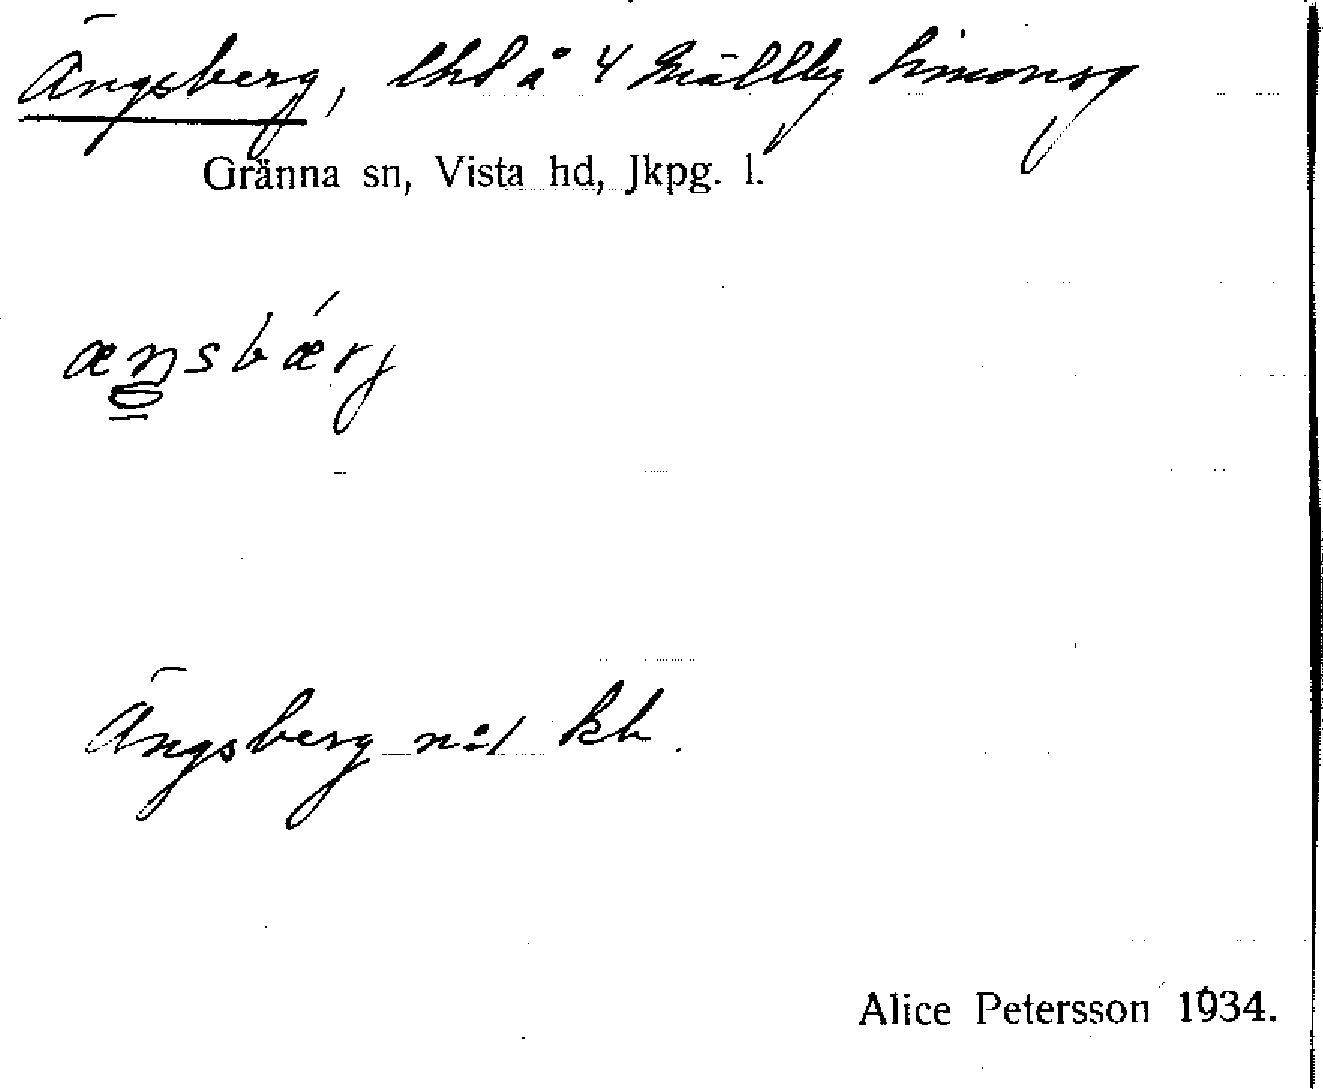 Ängsberg, lhd å 4 Mällby Simonsg
Gränna sn, Vista hd, Jkpg. l.
æŋsbǽrj
Ängsberg n:o1 kb.
Alice Petersson 1934.